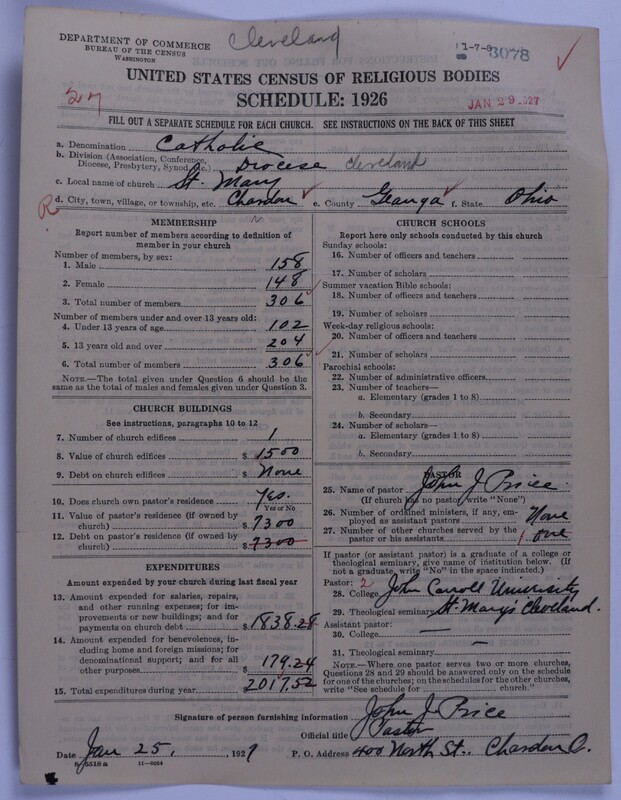 DEPARTMENT OF COMMERCE
BUREAU OF THE CENSUS
WASHINGTON
Cleveland
1-7-8
3078
UNITED STATES CENSUS OF RELIGIOUS BODIES
SCHEDULE: 1926
27
JAN 29 1927
FILL OUT A SEPARATE SCHEDULE FOR EACH CHURCH. SEE INSTRUCTIONS ON THE BACK OF THIS SHEET
a. Denomination Catholic
b. Division (Association, Conference, Diocese, Presbytery, Synod, etc.) Diocese Cleveland
c. Local name of church St. Mary
R d. City, town, village, or township, etc. Chardon e. County Geauga f. State Ohio
MEMBERSHIP
Report number of members according to definition of
member in your church
Number of members, by sex:
1. Male 158
2. Female 148
3. Total number of members 306
Number of members under and over 13 years old:
4. Under 13 years of age 102
5. 13 years old and over 204
6. Total number of members 306
NOTE.—The total given under Question 6 should be the
same as the total of males and females given under Question 3.
CHURCH BUILDINGS
See instructions, paragraphs 10 to 12
7. Number of church edifices 1
8. Value of church edifices $ 1500
9. Debt on church edifices $ None
10. Does church own pastor's residence Yes.
Yes or No
11. Value of pastor's residence (if owned by
church) $ 7300
12. Debt on pastor's residence (if owned by
church) $ 7300
EXPENDITURES
Amount expended by your church during last fiscal year
13. Amount expended for salaries, repairs,
and other running expenses; for im-
provements or new buildings; and for
payments on church debt $ 1838.28
14. Amount expended for benevolences, in-
cluding home and foreign missions; for
denominational support; and for all
other purposes $ 179.24
15. Total expenditures during year 2017.52
CHURCH SCHOOLS
Report here only schools conducted by this church
Sunday schools:
16. Number of officers and teachers
17. Number of scholars
Summer vacation Bible schools:
18. Number of officers and teachers
19. Number of scholars
Week-day religious schools:
20. Number of officers and teachers
21. Number of scholars
Parochial schools:
22. Number of administrative officers
23. Number of teachers—
a. Elementary (grades 1 to 8)
b. Secondary
24. Number of scholars—
a. Elementary (grades 1 to 8)
b. Secondary
PASTOR
25. Name of pastor John J Price
(If church has no pastor, write "None")
26. Number of ordained ministers, if any, em-
ployed as assistant pastors None
27. Number of other churches served by the
pastor or his assistants 1 one
If pastor (or assistant pastor) is a graduate of a college or
theological seminary, give name of institution below. (If
not a graduate, write "No" in the space indicated.)
Pastor: 2
28. College John Carroll University
29. Theological seminary St. Mary's Cleveland.
Assistant pastor:
30. College —
31. Theological seminary —
NOTE.—Where one pastor serves two or more churches,
Questions 28 and 29 should be answered only on the schedule
for one of the churches; on the schedules for the other churches,
write "See schedule for church."
Signature of person furnishing information John J Price
Official title Pastor
Date Jan 25, 1927 P. O. Address 400 North St., Chardon O.
8-5518 a 11—9054